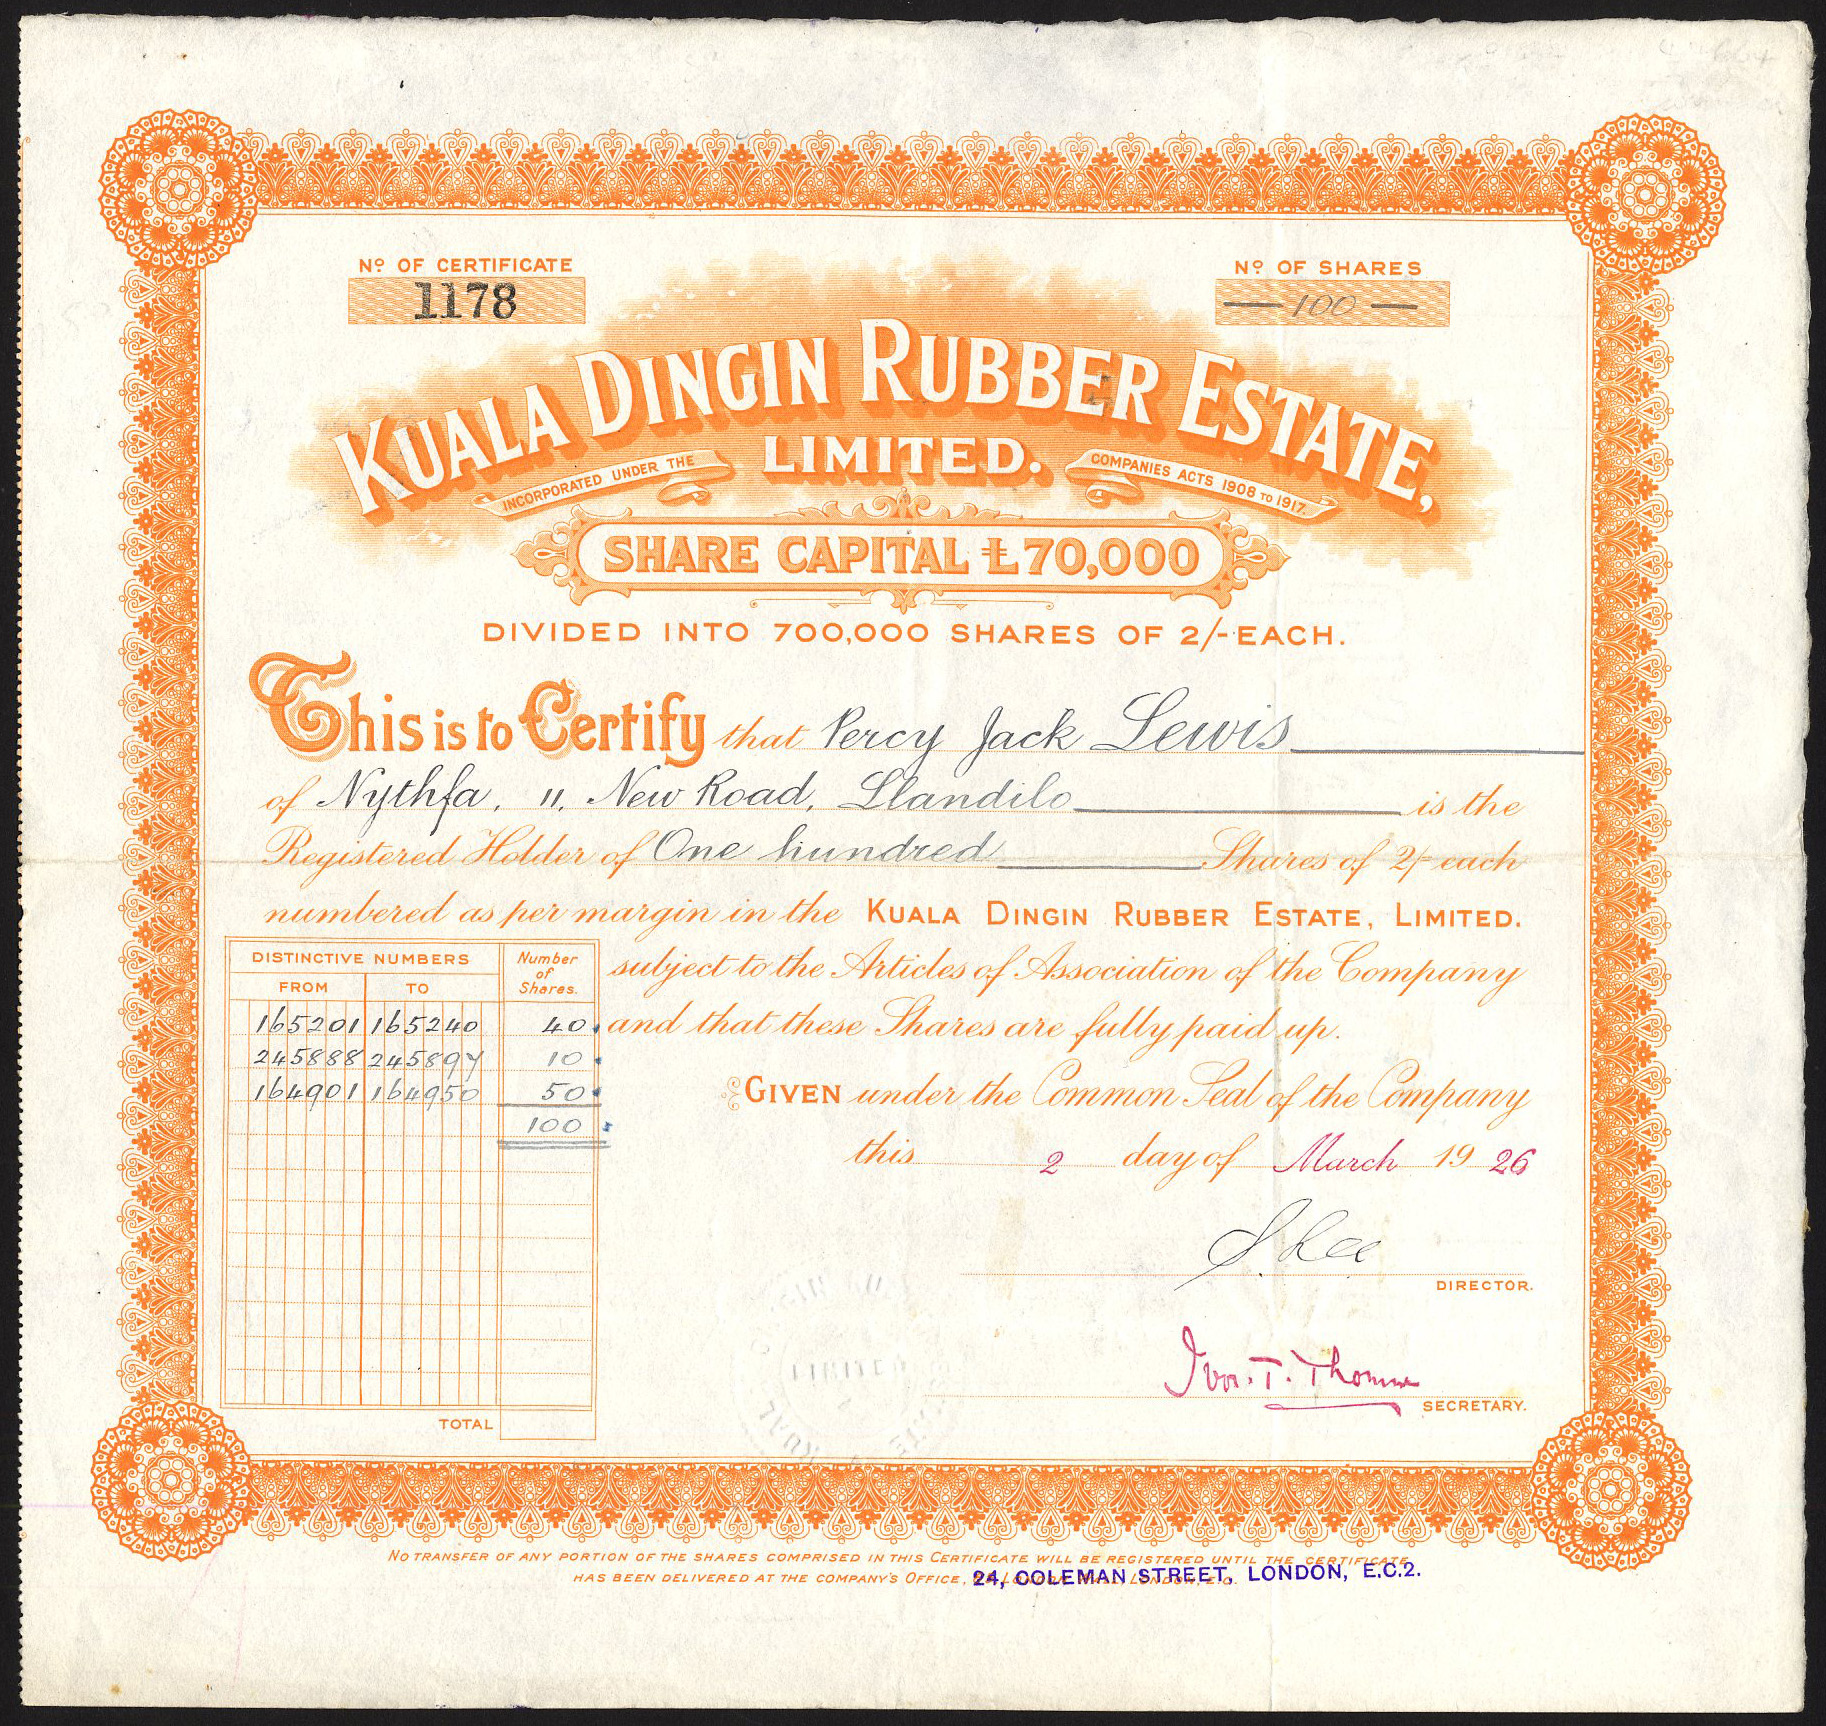 Nº OF CERTIFICATE
1178
Nº OF SHARES
— 100 —
KUALA DINGIN RUBBER ESTATE,
LIMITED.
INCORPORATED UNDER THE COMPANIES ACTS 1908 TO 1917.
SHARE CAPITAL £70,000
DIVIDED INTO 700,000 SHARES OF 2/- EACH.
This is to Certify that Percy Jack Lewis
of Nythfa, 11, New Road, Llandilo is the
Registered Holder of One hundred Shares of 2/- each
numbered as per margin in the KUALA DINGIN RUBBER ESTATE, LIMITED.
subject to the Articles of Association of the Company
and that these Shares are fully paid up.
DISTINCTIVE NUMBERS Number of Shares.
FROM TO
165201 165240 40
245888 245897 10
164901 164950 50
100
TOTAL
GIVEN under the Common Seal of the Company
this 2 day of March 19 26
S. Lee
DIRECTOR.
Ivor. T. Thomas
SECRETARY.
NO TRANSFER OF ANY PORTION OF THE SHARES COMPRISED IN THIS CERTIFICATE WILL BE REGISTERED UNTIL THE CERTIFICATE
HAS BEEN DELIVERED AT THE COMPANY'S OFFICE,
24, COLEMAN STREET, LONDON, E.C.2.